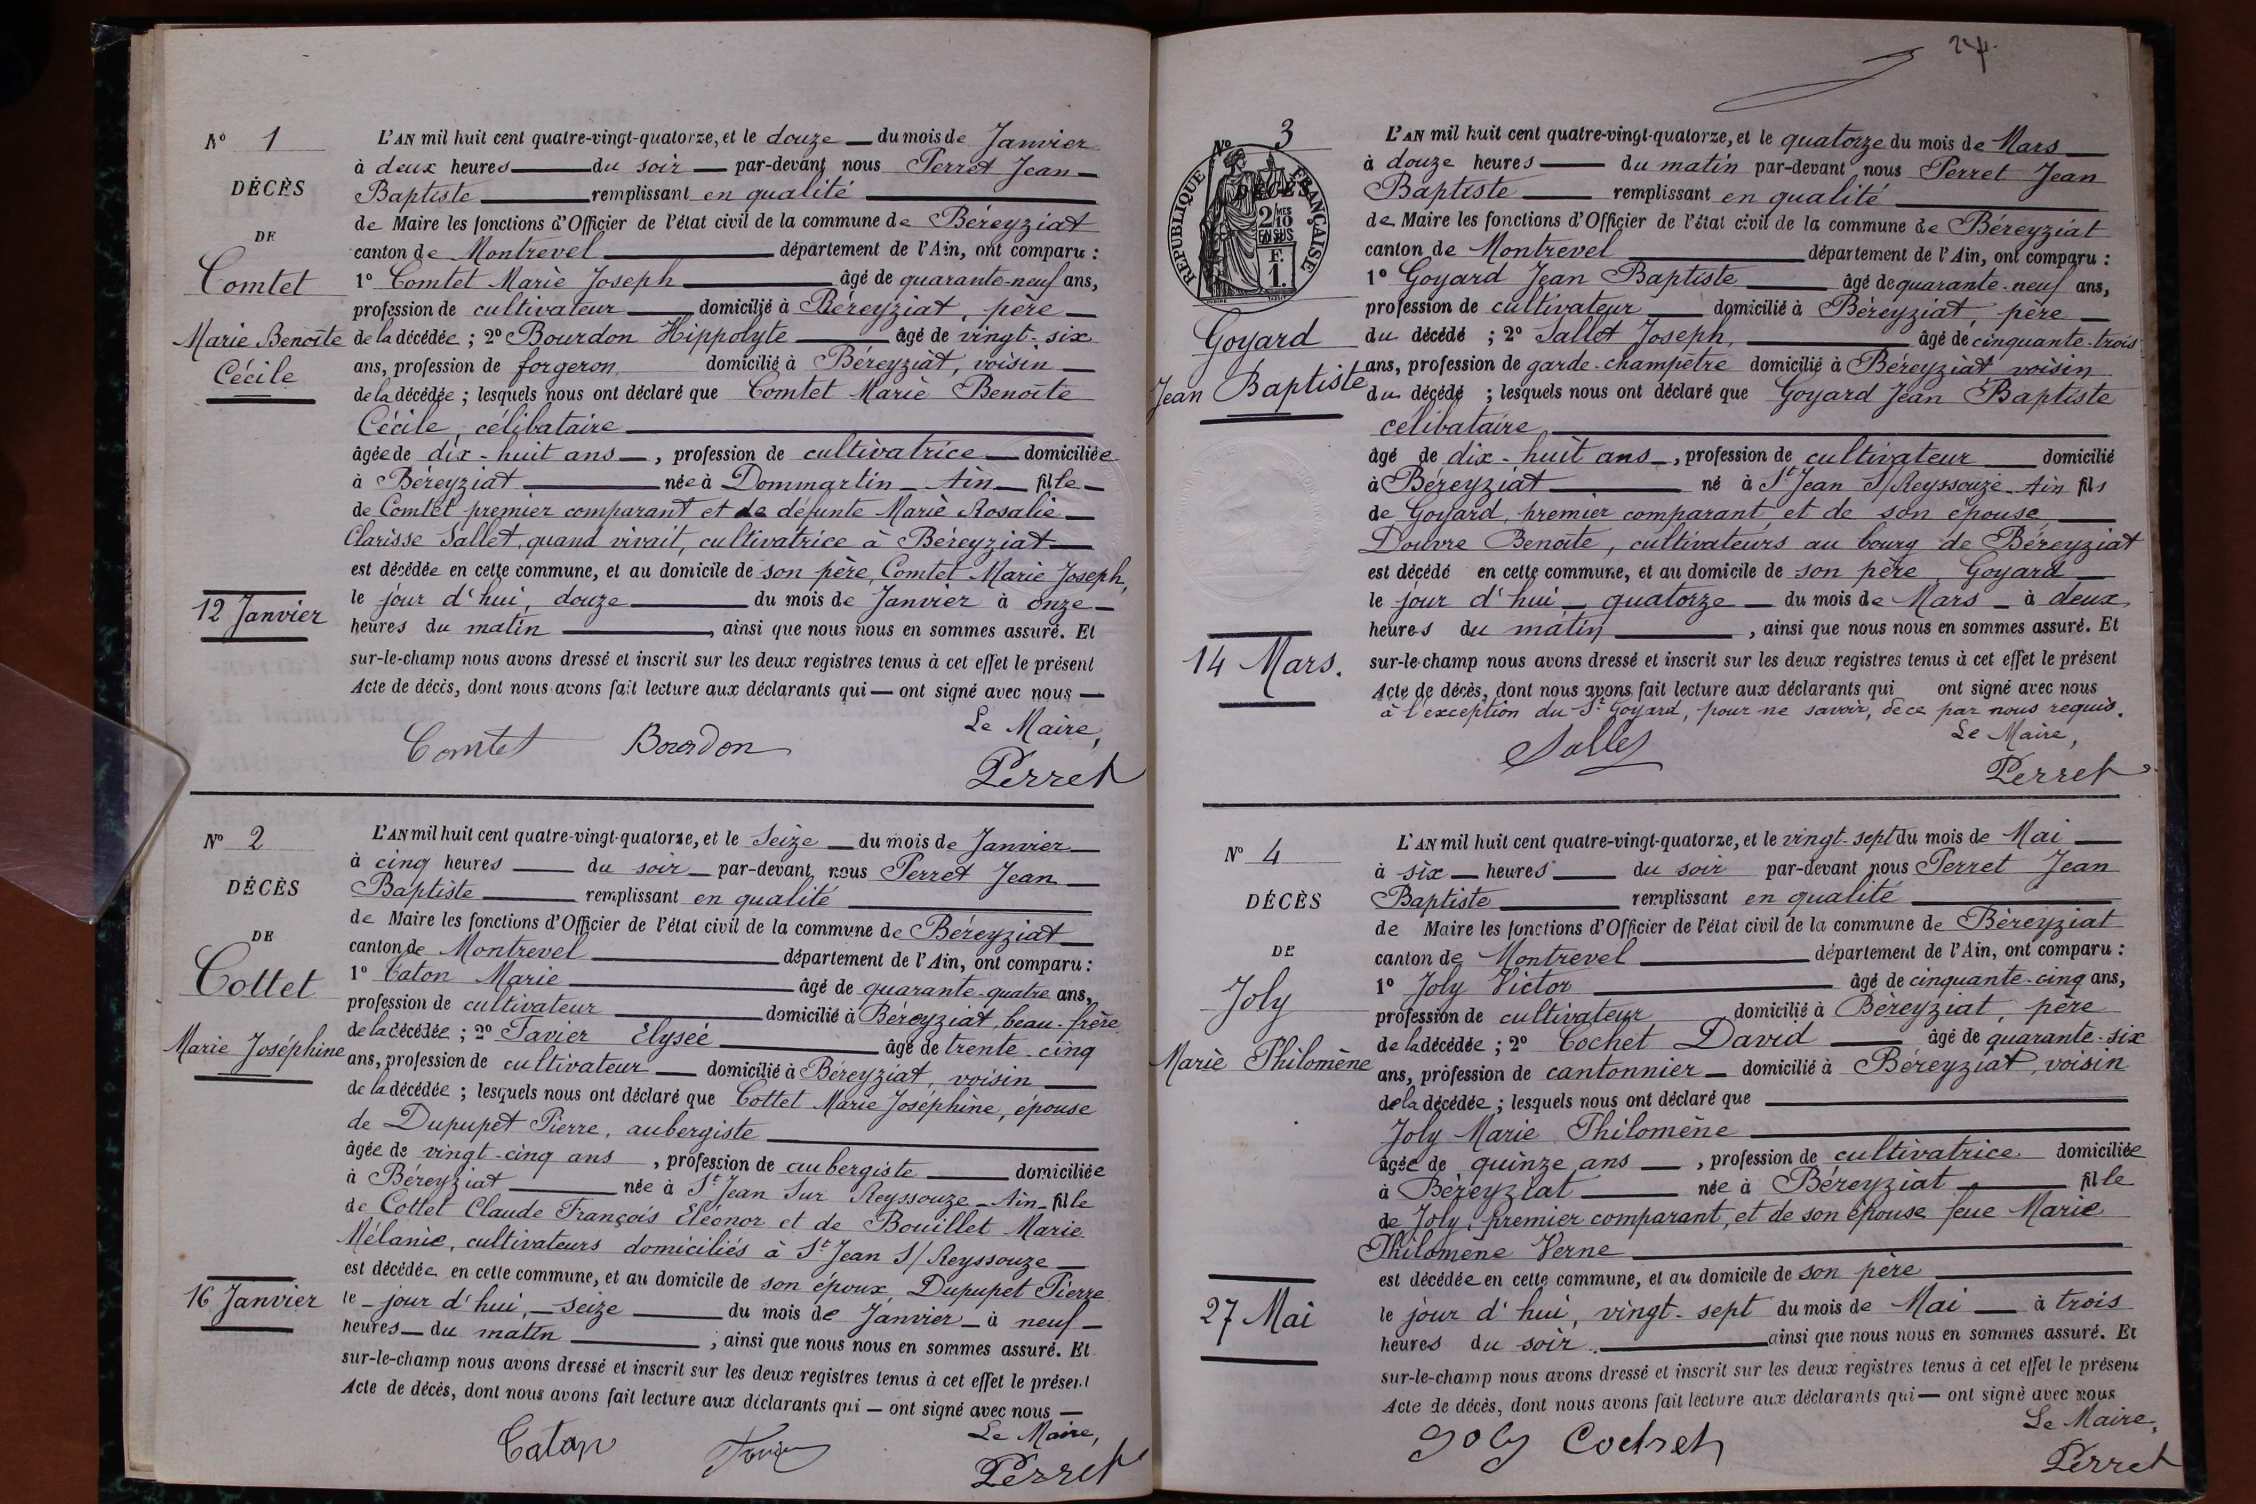 Nº 1
DÉCÈS
DE
Comtet
Marie Benoîte
Cécile
12 Janvier
L'AN mil huit cent quatre-vingt-quatorze, et le douze du mois de Janvier
à deux heures du soir par-devant nous Perret Jean
Baptiste remplissant en qualité
de Maire les fonctions d'Officier de l'état civil de la commune de Béreyziat
canton de Montrevel département de l'Ain, ont comparu :
1º Comtet Marie Joseph âgé de quarante-neuf ans,
profession de cultivateur domicilié à Béreyziat, père
de la décédée ; 2º Bourdon Hippolyte âgé de vingt-six
ans, profession de forgeron domicilié à Béreyziat, voisin
de la décédée ; lesquels nous ont déclaré que Comtet Marie Benoîte
Cécile, célibataire
âgée de dix-huit ans, profession de cultivatrice domiciliée
à Béreyziat née à Dommartin Ain fille
de Comtet premier comparant et de défunte Marie Rosalie
Clarisse Sallet, quand vivait, cultivatrice à Béreyziat
est décédée en cette commune, et au domicile de son père, Comtet Marie Joseph,
le jour d'hui, douze du mois de Janvier à onze
heures du matin, ainsi que nous nous en sommes assuré. Et
sur-le-champ nous avons dressé et inscrit sur les deux registres tenus à cet effet le présent
Acte de décès, dont nous avons fait lecture aux déclarants qui — ont signé avec nous —
Le Maire,
Comtet Bourdon Perret
Nº 2
DÉCÈS
DE
Cottet
Marie Joséphine
16 Janvier
L'AN mil huit cent quatre-vingt-quatorze, et le Seize du mois de Janvier
à cinq heures du soir par-devant nous Perret Jean
Baptiste remplissant en qualité
de Maire les fonctions d'Officier de l'état civil de la commune de Béreyziat
canton de Montrevel département de l'Ain, ont comparu :
1º Caton Marie âgé de quarante-quatre ans,
profession de cultivateur domicilié à Béreyziat, beau-frère
de la décédée ; 2º Favier Elysée âgé de trente-cinq
ans, profession de cultivateur domicilié à Béreyziat, voisin
de la décédée ; lesquels nous ont déclaré que Cottet Marie Joséphine, épouse
de Dupupet Pierre, aubergiste
âgée de vingt-cinq ans, profession de aubergiste domiciliée
à Béreyziat née à St Jean Sur Reyssouze Ain fille
de Cottet Claude François Eléonor et de Bouillet Marie
Mélanie, cultivateurs domiciliés à St Jean S/ Reyssouze
est décédée en cette commune, et au domicile de son époux, Dupupet Pierre
le jour d'hui, seize du mois de Janvier à neuf
heures du matin ; ainsi que nous nous en sommes assuré. Et
sur-le-champ nous avons dressé et inscrit sur les deux registres tenus à cet effet le présent
Acte de décès, dont nous avons fait lecture aux déclarants qui — ont signé avec nous —
Le Maire,
Caton Perret
Nº 3
DÉCÈS
RÉPUBLIQUE FRANÇAISE
2/10
EN SUS
F.
1.
Goyard
Jean Baptiste
14 Mars.
L'AN mil huit cent quatre-vingt-quatorze, et le quatorze du mois de Mars
à douze heures du matin par-devant nous Perret Jean
Baptiste remplissant en qualité
de Maire les fonctions d'Officier de l'état civil de la commune de Béreyziat
canton de Montrevel département de l'Ain, ont comparu :
1º Goyard Jean Baptiste âgé de quarante-neuf ans,
profession de cultivateur domicilié à Béreyziat, père
du décédé ; 2º Sallet Joseph, âgé de cinquante-trois
ans, profession de garde-champêtre domicilié à Béreyziat voisin
du décédé ; lesquels nous ont déclaré que Goyard Jean Baptiste
célibataire
âgé de dix-huit ans, profession de cultivateur domicilié
à Béreyziat né à St Jean S/ Reyssouze Ain fils
de Goyard, premier comparant, et de son épouse
Douvre Benoîte, cultivateurs au bourg de Béreyziat
est décédé en cette commune, et au domicile de son père Goyard
le jour d'hui quatorze du mois de Mars à deux
heures du matin, ainsi que nous nous en sommes assuré. Et
sur-le-champ nous avons dressé et inscrit sur les deux registres tenus à cet effet le présent
Acte de décès, dont nous avons fait lecture aux déclarants qui ont signé avec nous
à l'exception du Sr Goyard, pour ne savoir, de ce par nous requis.
Le Maire,
Sallet Perret
Nº 4
DÉCÈS
DE
Joly
Marie Philomène
27 Mai
L'AN mil huit cent quatre-vingt-quatorze, et le vingt-sept du mois de Mai
à six heures du soir par-devant nous Perret Jean
Baptiste remplissant en qualité
de Maire les fonctions d'Officier de l'état civil de la commune de Béreyziat
canton de Montrevel département de l'Ain, ont comparu :
1º Joly Victor âgé de cinquante-cinq ans,
profession de cultivateur domicilié à Béreyziat, père
de la décédée ; 2º Cochet David âgé de quarante-six
ans, profession de cantonnier domicilié à Béreyziat, voisin
de la décédée ; lesquels nous ont déclaré que
Joly Marie Philomène
âgée de quinze ans, profession de cultivatrice domiciliée
à Béreyziat née à Béreyziat fille
de Joly, premier comparant, et de son épouse feue Marie
Philomène Verne
est décédée en cette commune, et au domicile de son père
le jour d'hui, vingt-sept du mois de Mai à trois
heures du soir ainsi que nous nous en sommes assuré. Et
sur-le-champ nous avons dressé et inscrit sur les deux registres tenus à cet effet le présent
Acte de décès, dont nous avons fait lecture aux déclarants qui — ont signé avec nous
Le Maire,
Joly Cochet Perret